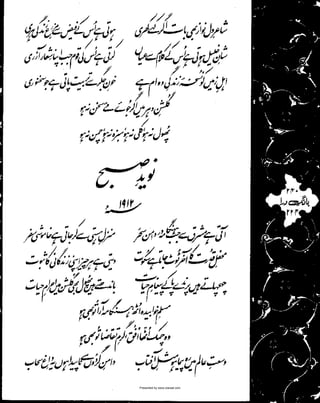 شاعرِ دل نواز بھی بات اگر کہے کھری
ہوتی ہے اس کے فیض سے مزرعِ زندگی ہری
شانِ خلیل ہوتی ہے اس کے کلام سے عیاں
کرتی ہے اس کی قوم جب اپنا شعار آزری
اہلِ زمیں کو نسخۂ زندگیِ دوام ہے
خونِ جگر سے تربیت پاتی ہے جو سخنوری
گلشنِ دہر میں اگر جوئے مئے سخن نہ ہو
پھول نہ ہو، کلی نہ ہو، سبزہ نہ ہو، چمن نہ ہو
نویدِ صبح
۱۹۱۲ء
آتی ہے مشرق سے جب ہنگامہ در دامن سحر
منزلِ ہستی سے کر جاتی ہے خاموشی سفر
محفلِ قدرت کا آخر ٹوٹ جاتا ہے سکوت
دیتی ہے ہر چیز اپنی زندگانی کا ثبوت
چہچہاتے ہیں پرندے پا کے پیغامِ حیات
باندھتے ہیں پھول بھی گلشن میں احرامِ حیات
مسلمِ خوابیدہ اٹھ، ہنگامہ آرا تو بھی ہو
وہ چمک اٹھا افق، گرمِ تقاضا تو بھی ہو
وسعتِ عالم میں رہ پیما ہو مثلِ آفتاب
دامنِ گردوں سے ناپیدا ہوں یہ داغِ سحاب
بانگِ درا